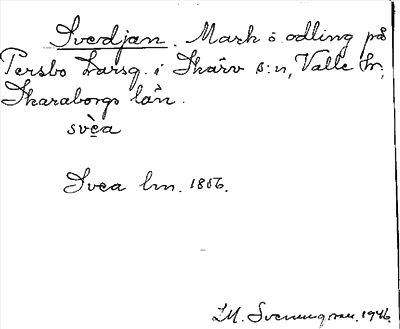 Svedjan. Mark o. odling på
Persbo Larsg. i Skärv s:n, Valle hr,
Skaraborgs län.
svèa
Svea lm. 1856.
M. Svenungsson. 1946.